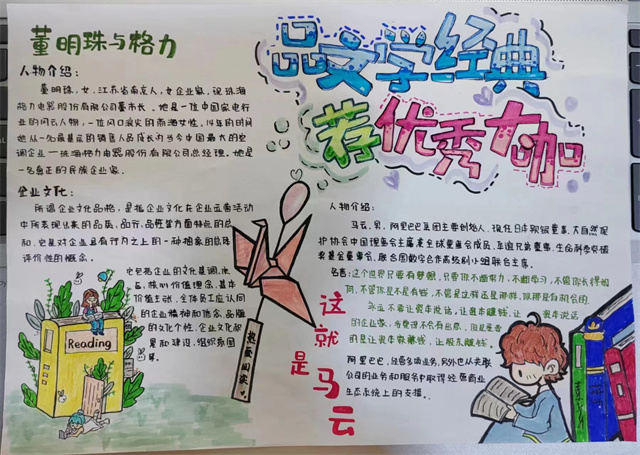 品文学经典
荐优秀大咖
董明珠与格力
人物介绍：
董明珠，女，江苏省南京人，女企业家，现珠海
格力电器股份有限公司董事长，她是一位中国家电行
业的风云人物，一位风口浪尖的商海女性，
她从一名最基层的销售人员成长为当今中国最大的空
调企业一珠海格力电器股份有限公司总经理，她是
一名真正的民族企业家。
企业文化：
所谓企业文化品格，是指企业文化在企业运营活动
中所表现出来的品质、品行、品性等方面特点的总
和，它是对企业具有评判之上的一种抽象的总体
评价性的概念。
它包括企业的文化基调，
核心价值理念，基本
价值主张，全体员工应认同
的企业精神和信念，品牌
的文化个性，企业文化
和建设，组织氛围
等。
Reading
热爱国家
这就是马云
人物介绍：
马云，男，阿里巴巴集团主要创始人，现任日本软银董事，大自然保
护协会中国理事会主席兼全球董事会成员，华谊兄弟董事，生命科学突破
奖基金会董事，联合国数字合作高级别小组联合主席。
名言：这个世界只要有梦想，只要你不断努力，不断学习，不管你长得如
何，不管你是不是有钱，不管是这样还是那样，你都是有机会的
永远不要让资本说话，让资本赚钱，让资本说话
的企业家，
的是让资本家赚钱，让股东赚钱。
阿里巴巴，经营多项业务，另外也从关联
公司的业务和服务中取得经营商业
生态系统上的支援。